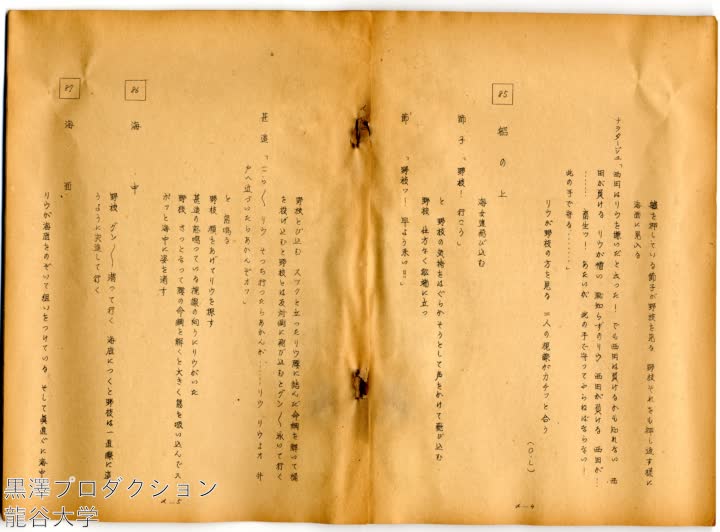 艪を押している節子が野枝を見る 野枝それをも押し返す様に
海面に見入る
ナラタージュ「西田はリウを嫌いだと云った! でも西田は負けるかも知れない 西
田が負ける リウが憎い 恥知らずのリウ 西田が負ける 西田が…
……畜生ッ! あたいが 此の手で守ってやらねばならない!
此の手で守る……」
リウが野枝の方を見る 二人の視線がカチッと合う
(O・L)
85 船の上
海女達飛び込む
節子「野枝! 行こう」
と 野枝の気持をはぐらかそうとして声をかけて飛び込む
野枝 仕方なく船端に立つ
節「野枝ッ! 早よう来い!!」
d—4
野枝とび込む スックと立ったリウ 腰に結んだ命綱を解いて横
を投げ込むと野枝とは反対側に飛び込むとグン〱泳いで行く
甚造「こら〱 リウ そっち行ったらあかんが……リウ リウよオ 井
戸へ近づいたらあかんぞオッ」
と 怒鳴る
野枝 顔をあげてリウを探す
甚造の怒鳴っている視線の向うにリウがいた
野枝 さっとなって腰の命綱を解くと大きく息を吸い込んでス
ポッと海中に姿を消す
86 海中
野枝 グン〱潜って行く 海底につくと野枝は一直線に這
うように突進して行く
87 海面
リウが海底をのぞいて狙いをつけている そして真直ぐに海中
d—5
黒澤プロダクション
龍谷大学